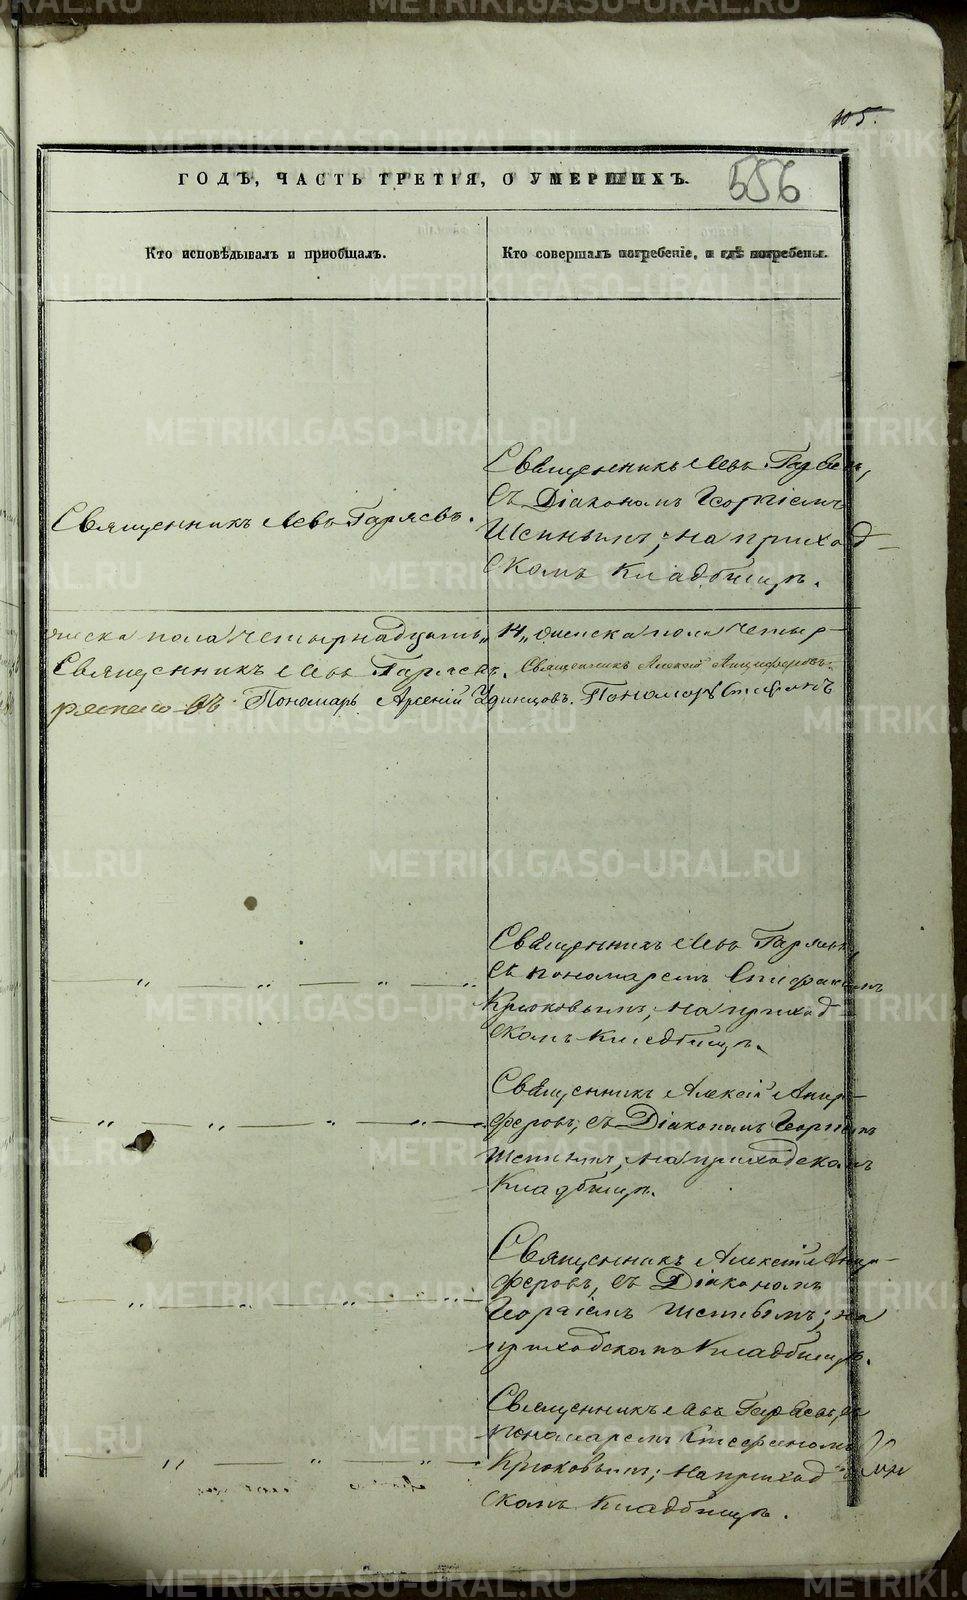 105.
ГОДѢ, ЧАСТЬ ТРЕТІЯ, О УМЕРШИХЪ.
556
Кто исповѣдывалъ и пріобщалъ.
Кто совершалъ погребеніе, и гдѣ погребены.
Священникъ Левъ Гаряевъ.
Священникъ Левъ Гаряевъ,
съ Діакономъ Георгіемъ
на приход-
скомъ кладбищѣ.
женска пола четырнадцать „14„ женска пола четыр-
Священникъ Левъ Гаряевъ. Священникъ Алексій Анциферовъ.
Пономарь Арсеній Удинцовъ. Пономарь Стефанъ
Священникъ Левъ Гаряевъ,
съ пономаремъ Стефаномъ
Крюковымъ, на приход-
скомъ кладбищѣ.
Священникъ Алексій Анци-
феровъ, съ Діакономъ Георгіемъ
на приходскомъ
кладбищѣ.
Священникъ Алексій Анци-
феровъ, съ Діакономъ
Георгіемъ на
приходскомъ кладбищѣ.
Священникъ Левъ Гаряевъ, съ
пономаремъ Стефаномъ
Крюковымъ; на приход-
скомъ кладбищѣ.
METRIKI.GASO-URAL.RU